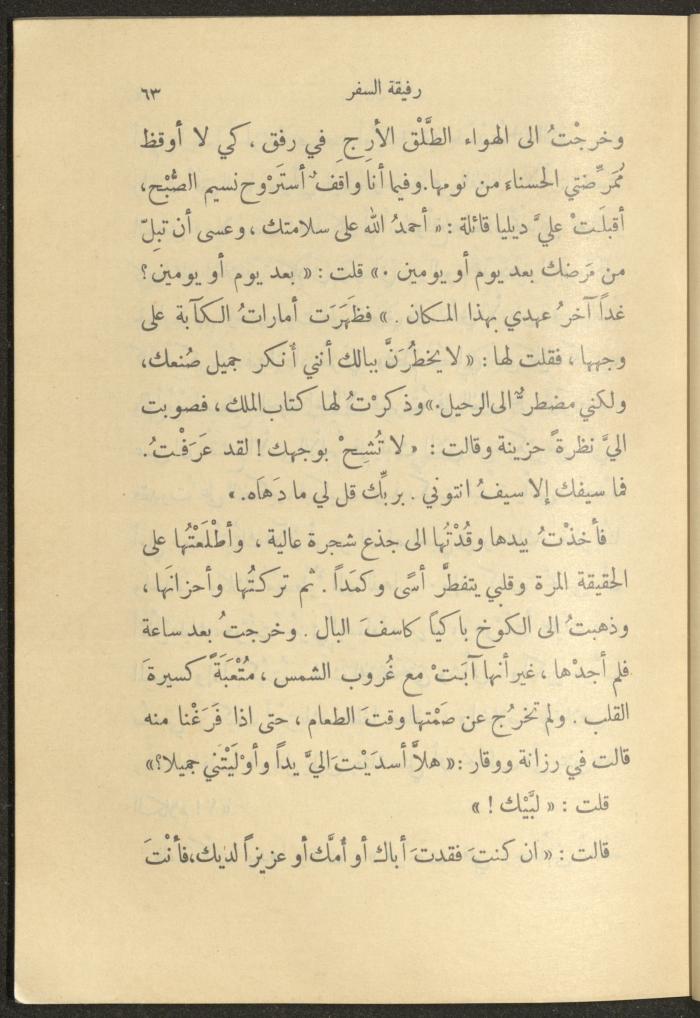 رفيقة السفر ٦٣
وخرجْتُ الى الهواء الطَّلْق الأرِجِ في رفق ، كي لا أوقظ
مُمَرِّضتي الحسناءَ من نومها. وفيما أنا واقفٌ أستَرْوح نسيم الصُّبْح،
أقبلَتْ عليَّ ديليا قائلة : « أحمدُ الله على سلامتك ، وعسى أن تبِلّ
من مَرَضك بعد يوم أو يومين . » قلت : « بعد يوم أو يومين ؟
غداً آخرُ عهدي بهذا المكان . » فظَهَرَت أماراتُ الكآبة على
وجهها ، فقلت لها : « لا يخطُرَنَّ ببالك أنني أُنكر جميل صُنعك،
ولكني مضطرٌّ الى الرحيل.» وذكرْتُ لها كتاب الملك ، فصوبت
اليَّ نظرةً حزينة وقالت : « لا تُشِحْ بوجهك ! لقد عَرَفْتُ.
فما سيفك إلا سيفُ انتوني . بربِّك قل لي ما دَهاَه. »
فأخذْتُ بيدها وقُدْتُها الى جذع شجرة عالية ، وأطْلَعْتُها على
الحقيقة المرة وقلبي يتفطَّر أسًى وكمَداً . ثم تركتُها وأحزانَها ،
وذهبتُ الى الكوخ باكياً كاسفَ البال . وخرجتُ بعد ساعة
فلم أجدْها ، غير أنها آبَتْ مع غُروب الشمس ، مُتْعَبَةً كسيرةَ
القلب . ولم تخرُج عن صَمْتها وقتَ الطعام ، حتى اذا فَرَغْنا منه
قالت في رزانة ووقار : « هلاَّ أسدَيْتَ اليَّ يداً وأوْلَيْتَني جميلا؟»
قلت : « لبَّيْك ! »
قالت : « ان كنتَ فقدتَ أباك أو أمَّك أو عزيزاً لديك، فأنْتَ